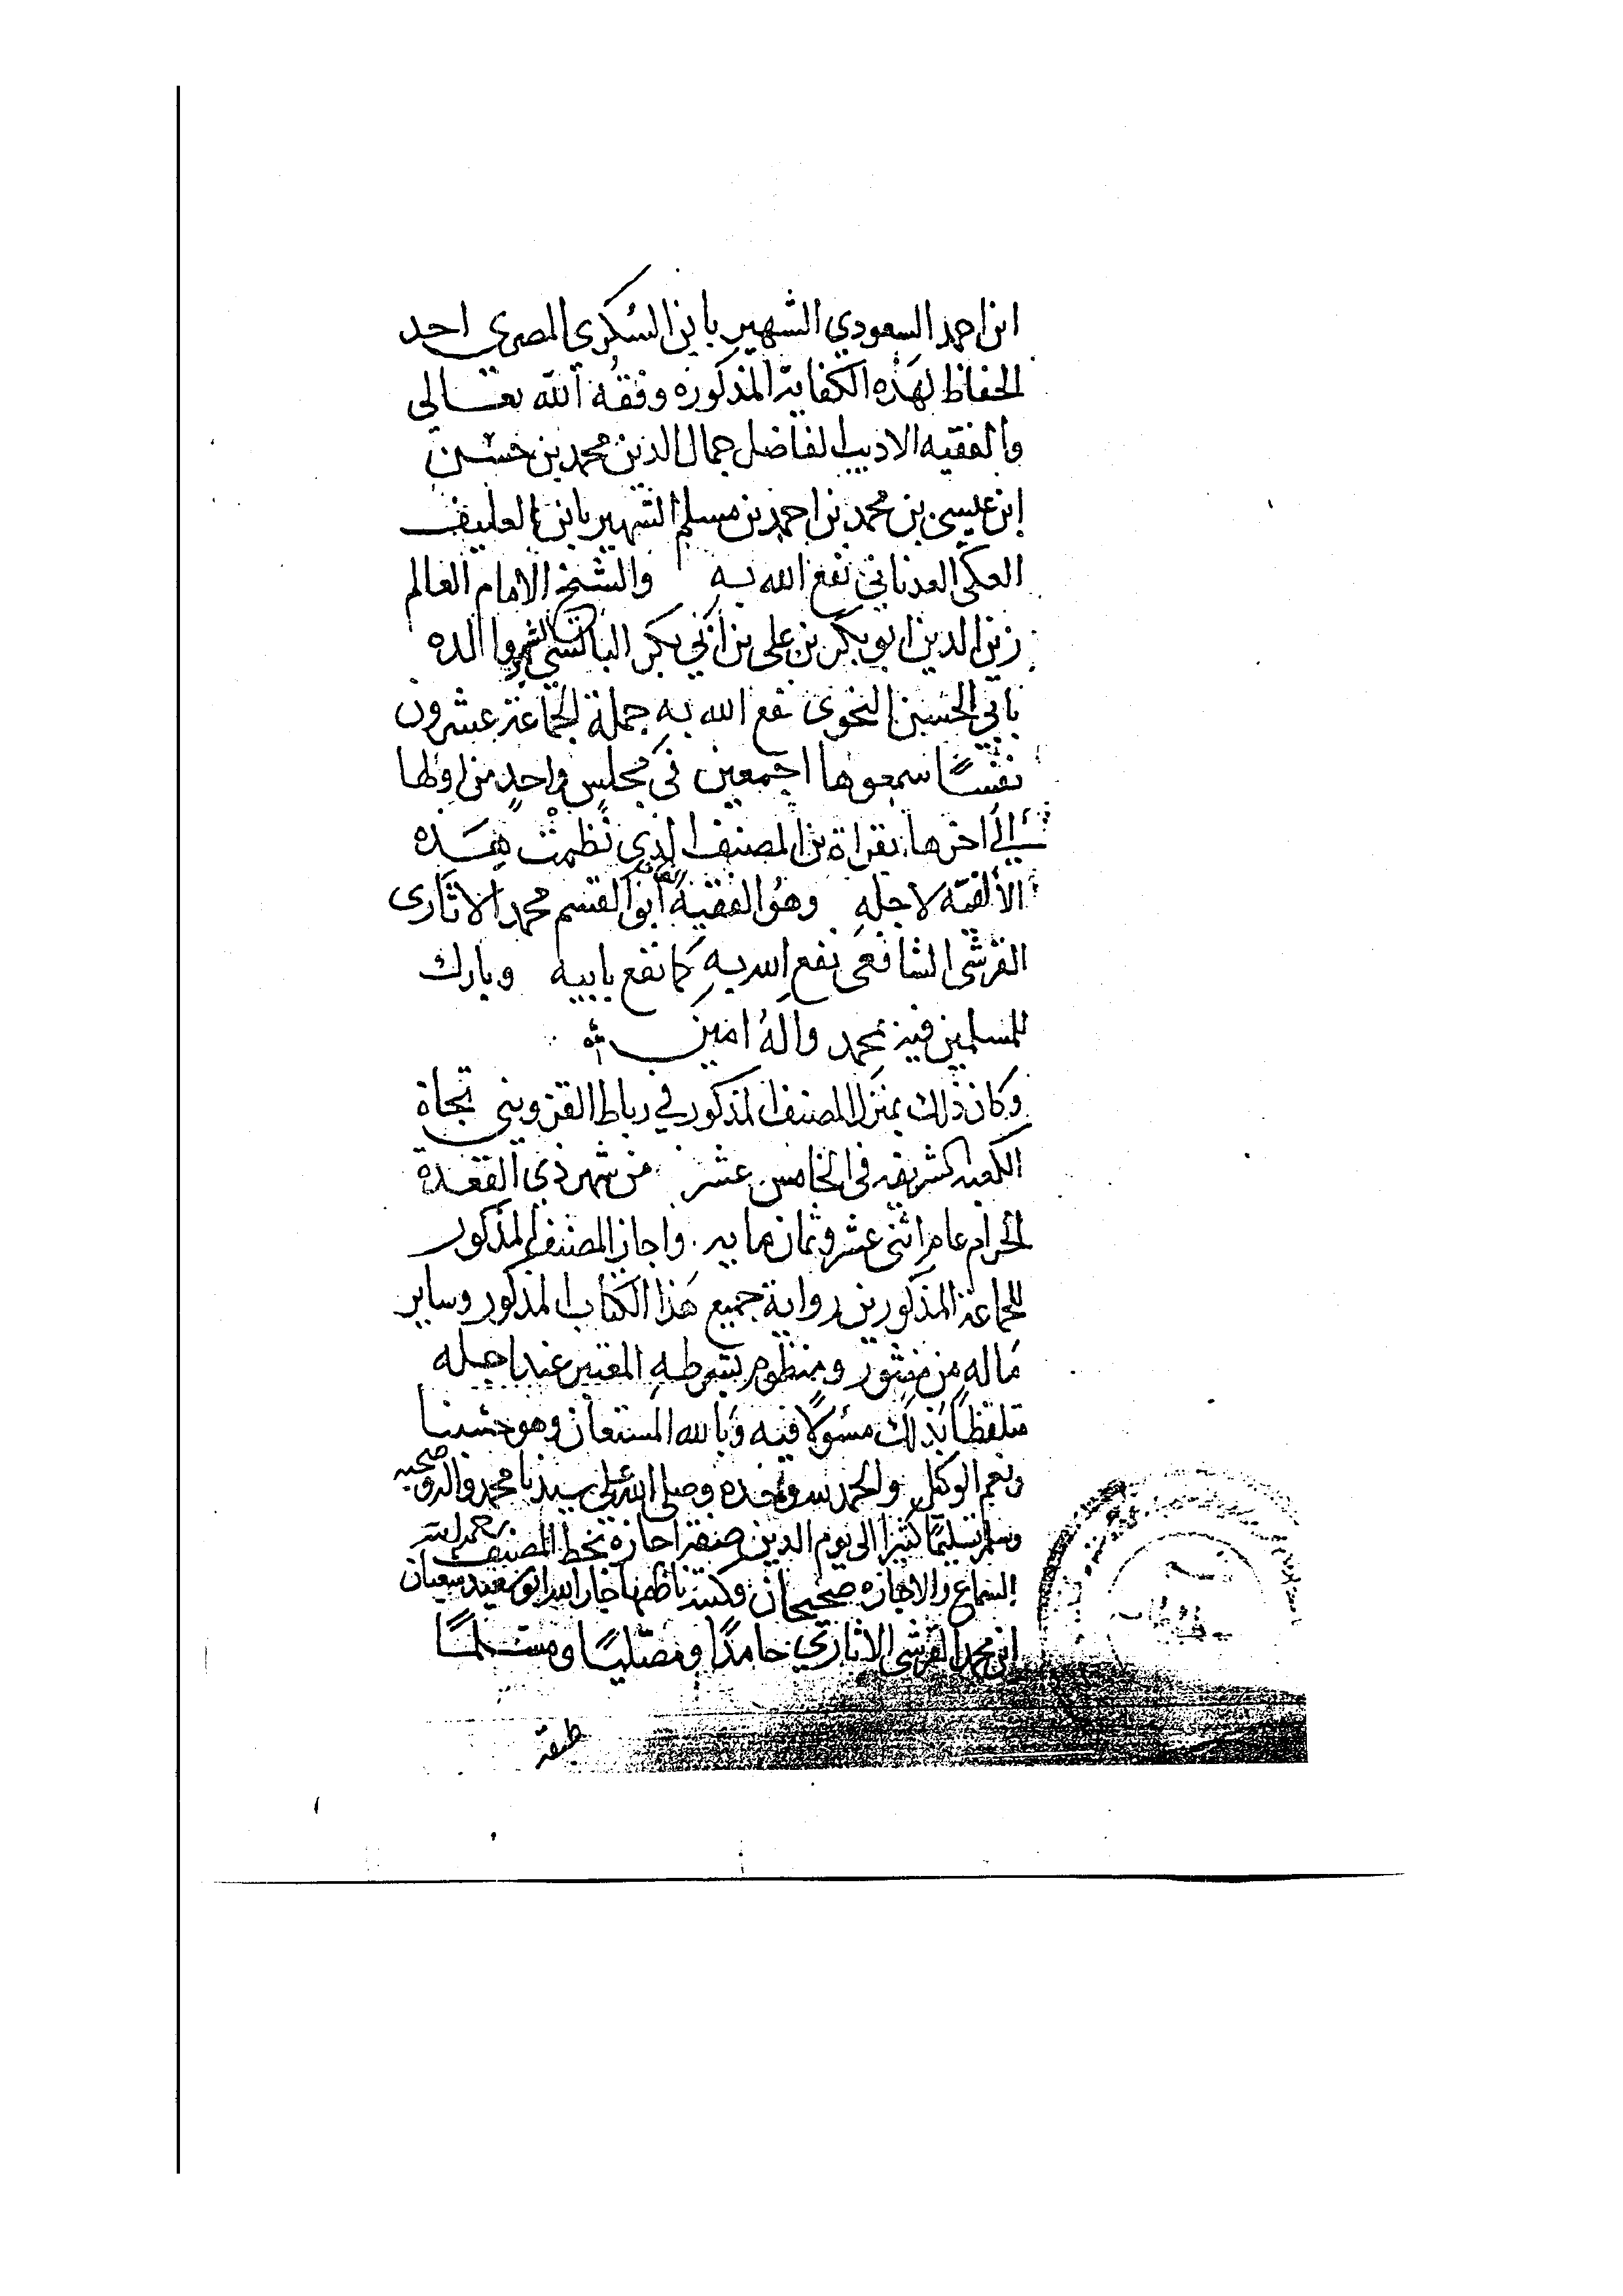 ابن احمد السعودي الشهير بابن السكري المصري احد
الحفاظ لهذه الكفاية المذكوره وفقه الله تعالى
والفقيه الاديب الفاضل جمال الدين محمد بن حسن
ابن عيسى بن محمد بن احمد بن مسلم الشهير بابن العليف
العكي العدناني نفع الله به والشيخ الامام العالم
زين الدين ابو بكر بن علي بن ابي بكر والده
بابي الحسين النحوى نفع الله به جملة الجماعة عشرون
نفسًا سمعوها اجمعين في مجلس واحدٍ من اولها
الى اخرها بقراة بن المصنف الذي نظمت هذه
الألفية لاجله وهو الفقيه ابو القسم محمد الاثارى
القرشى الشافعى نفع الله به كما نفع بابيه وبارك
للمسلمين فيه بمحمد واله امين
وكان ذلك بمنزل المصنف المذكور في رباط القزويني تجاة
الكعبه الشريفه في الخامس عشر من شهر ذي القعدة
الحرام عام اثنى عشر وثمان مايه واجاز المصنف المذكور
للجماعة المذكورين رواية جميع هذا الكتاب المذكور وساير
ما له من منثور ومنظوم بشرطه المعتبر عند اهله
متلفظًا بذلك مسؤلًا فيه وبالله المستعان وهو حسبنا
ونعم الوكيل والحمد لله وحده وصلى الله على سيدنا محمد واله وصحبه
وسلم تسليمًا كثيرا الى يوم الدين صفة اجازة بخط المصنف رحمه الله
السماع والاجازه صحيحان وكتبه ناظمها ابو سعيد شعبان
ابن محمد القرشى الاثاري حامدًا ومصليًا ومسلمًا